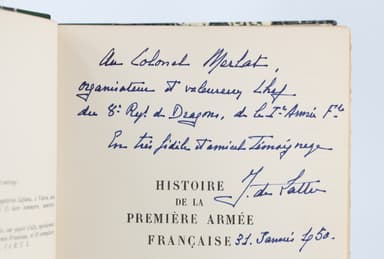 Au Colonel Merlat,
organisateur et valeureux Chef
du 8e Régt de Dragons, de la Ière Armée Fse
En très fidèle et amical Témoignage
J. de Lattre
HISTOIRE
DE LA
PREMIÈRE ARMÉE
FRANÇAISE
31. Janvier 1950.